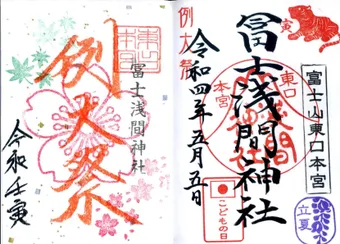 例大祭
冨士浅間神社
令和壬寅
寅
例大祭
冨士浅間神社
東口
本宮
令和四年五月五日
冨士山東口本宮
こどもの日
立夏